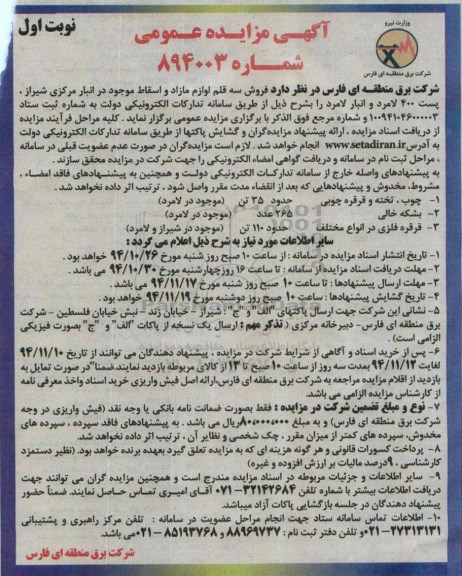 وزارت نیرو
شرکت برق منطقه ای فارس
آگهی مزایده عمومی
نوبت اول
شماره ۸۹۴۰۰۳
شرکت برق منطقه ای فارس در نظر دارد فروش سه قلم لوازم مازاد و اسقاط موجود در انبار مرکزی شیراز ،
پست ۴۰۰ لامرد و انبار لامرد را بشرح ذیل از طریق سامانه تدارکات الکترونیکی دولت به شماره ثبت ستاد
۱۰۰۹۴۱۰۴۶۰۰۰۰۳ و شماره مرجع فوق الذکر با برگزاری مزایده عمومی برگزار نماید . کلیه مراحل فرآیند مزایده
از دریافت اسناد مزایده ، ارائه پیشنهاد مزایده‌گران و گشایش پاکتها از طریق سامانه تدارکات الکترونیکی دولت
به آدرس www.setadiran.ir انجام خواهد شد . لازم است مزایده‌گران در صورت عدم عضویت قبلی در سامانه
، مراحل ثبت نام در سامانه و دریافت گواهی امضاء الکترونیکی را جهت شرکت در مزایده محقق سازند .
به پیشنهادهای واصله خارج از سامانه تدارکات الکترونیکی دولت و همچنین به پیشنهادهای فاقد امضاء ،
مشروط، مخدوش و پیشنهادهایی که بعد از انقضاء مدت مقرر واصل شود ، ترتیب اثر داده نخواهد شد .
۱- چوب ، تخته و قرقره چوبی حدود ۳۵ تن (موجود در لامرد)
۲- بشکه خالی ۲۶۵ عدد (موجود در لامرد)
۳- قرقره فلزی در انواع مختلف حدود ۱۱۰ تن (موجود در شیراز و لامرد)
سایر اطلاعات مورد نیاز به شرح ذیل اعلام می گردد :
۱- تاریخ انتشار اسناد مزایده در سامانه : از ساعت ۱۰ صبح روز شنبه مورخ ۹۴/۱۰/۲۶ خواهد بود .
۲- مهلت دریافت اسناد مزایده از سامانه : تا ساعت ۱۶ روز چهارشنبه مورخ ۹۴/۱۰/۳۰ می باشد .
۳- مهلت ارسال پیشنهادها : تا ساعت ۱۰ صبح روز شنبه مورخ ۹۴/۱۱/۱۷ می باشد.
۴- تاریخ گشایش پیشنهادها : ساعت ۱۰ صبح روز دوشنبه مورخ ۹۴/۱۱/۱۹ خواهد شد .
۵- نشانی این شرکت جهت ارسال پاکتهای "الف" و "ج" : شیراز - خیابان زند - نبش خیابان فلسطین - شرکت
برق منطقه ای فارس- دبیرخانه مرکزی ( تذکر مهم : ارسال یک نسخه از پاکات "الف" و "ج" بصورت فیزیکی
الزامی است) .
۶- پس از خرید اسناد و آگاهی از شرایط شرکت در مزایده ، پیشنهاد دهندگان می توانند از تاریخ ۹۴/۱۱/۱۰
لغایت ۹۴/۱۱/۱۲ بمدت سه روز از ساعت ۱۰ صبح تا ۱۳ از کالای مربوطه بازدید نمایند.ضمنا"در صورت تمایل به
بازدید از اقلام مزایده مراجعه به شرکت برق منطقه ای فارس،ارائه اصل فیش واریزی خرید اسناد واخذ معرفی نامه
از کارشناس مزایده الزامی می باشد.
۷- نوع و مبلغ تضمین شرکت در مزایده : فقط بصورت ضمانت نامه بانکی یا وجه نقد (فیش واریزی در وجه
شرکت برق منطقه ای فارس) و به مبلغ ۸۰,۰۰۰,۰۰۰ریال می باشد . به پیشنهادهای فاقد سپرده ، سپرده های
مخدوش، سپرده های کمتر از میزان مقرر ، چک شخصی و نظایر آن ، ترتیب اثر داده نخواهد شد.
۸- پرداخت کسورات قانونی و هر گونه هزینه ای که به مزایده تعلق گیرد بعهده برنده خواهد بود. (نظیر دستمزد
کارشناسی ، ۹درصد مالیات بر ارزش افزوده و غیره)
۹- سایر اطلاعات و جزئیات مربوطه در اسناد مزایده مندرج است و همچنین مزایده گران می توانند جهت
دریافت اطلاعات بیشتر با شماره تلفن ۳۲۱۴۲۶۸۴-۰۷۱ آقای امیری تماس حاصل نمایند. ضمناً حضور
پیشنهاد دهندگان در جلسه بازگشایی پاکات آزاد میباشد.
۱۰- اطلاعات تماس سامانه ستاد جهت انجام مراحل عضویت در سامانه : تلفن مرکز راهبری و پشتیبانی
۲۷۳۱۳۱۳۱-۰۲۱و تلفن دفتر ثبت نام : ۸۸۹۶۹۷۳۷ و ۸۵۱۹۳۷۶۸-۰۲۱می باشد.
شرکت برق منطقه ای فارس